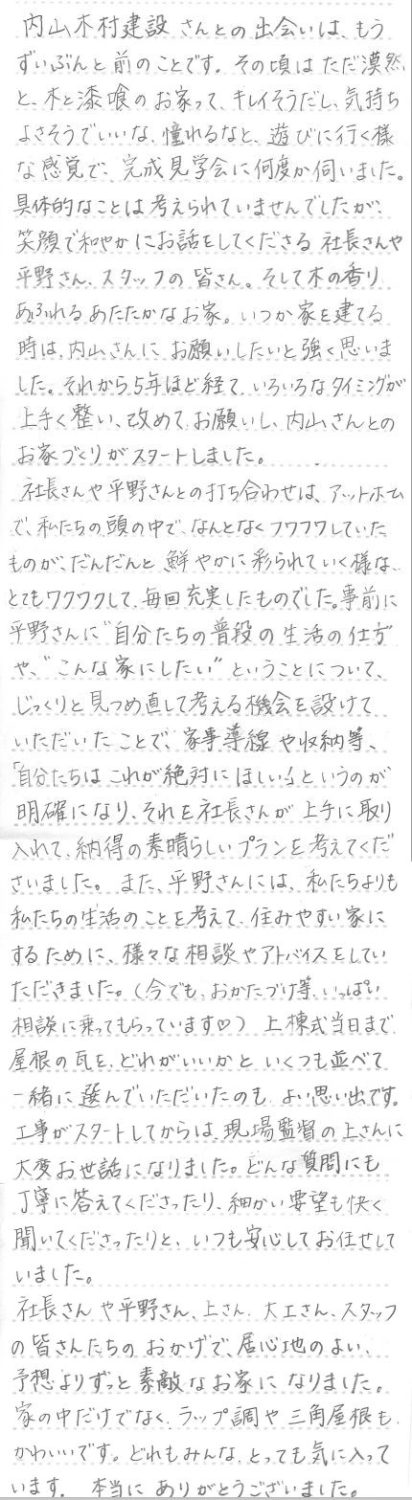 内山木村建設 さんとの出会いは、もう
ずいぶんと前のことです。その頃はただ漠然
と、木と漆喰のお家って、キレイそうだし、気持ち
よさそうでいいな、憧れるなと、遊びに行く様
な感覚で、完成見学会に何度か伺いました。
具体的なことは考えられていませんでしたが、
笑顔で和やかにお話をしてくださる 社長さんや
平野さん、スタッフの皆さん。そして木の香り
あふれるあたたかなお家。いつか家を建てる
時は、内山さんに お願いしたいと強く思いま
した。それから5年ほど経て、いろいろなタイミングが
上手く整い、改めてお願いし、内山さんとの
お家づくりがスタートしました。
社長さんや平野さんとの打ち合わせは、アットホーム
で、私たちの頭の中で、なんとなくフワフワしていた
ものが、だんだんと 鮮やかに彩られていく様な、
とてもワクワクして、毎回充実したものでした。事前に
平野さんに"自分たちの普段の生活の仕方
や、"こんな家にしたい"ということについて、
じっくりと見つめ直して考える機会を設けて
いただいたことで、家事導線や収納等、
「自分たちは これが絶対にほしい!」というのが
明確になり、それを社長さんが上手に取り
入れて、納得の素晴らしいプランを考えてくだ
さいました。また、平野さんには、私たちよりも
私たちの生活のことを考えて、住みやすい家に
するために、様々な相談やアドバイスをしてい
ただきました。(今でも、おかたづけ等、いっぱい
相談に乗ってもらっています♡) 上棟式当日まで
屋根の瓦を、どれがいいかと いくつも並べて
一緒に選んでいただいたのも、よい思い出です。
工事がスタートしてからは、現場監督の上さんに
大変お世話になりました。どんな質問にも
丁寧に答えてくださったり、細かい要望も快く
聞いてくださったりと、いつも安心してお任せして
いました。
社長さんや平野さん、上さん、大工さん、スタッフ
の皆さんたちの おかげで、居心地のよい、
予想よりずっと素敵なお家になりました。
家の中だけでなく、ラップ調や三角屋根も
かわいいです。どれもみんな、とっても気に入って
います。 本当に ありがとうございました。